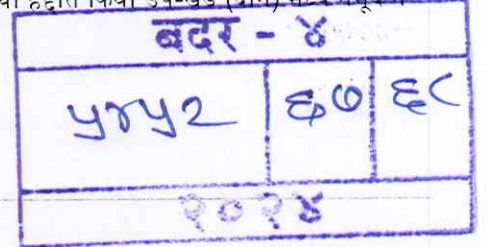 बदर - ४
५४५२ ६७ ६८
२०२४